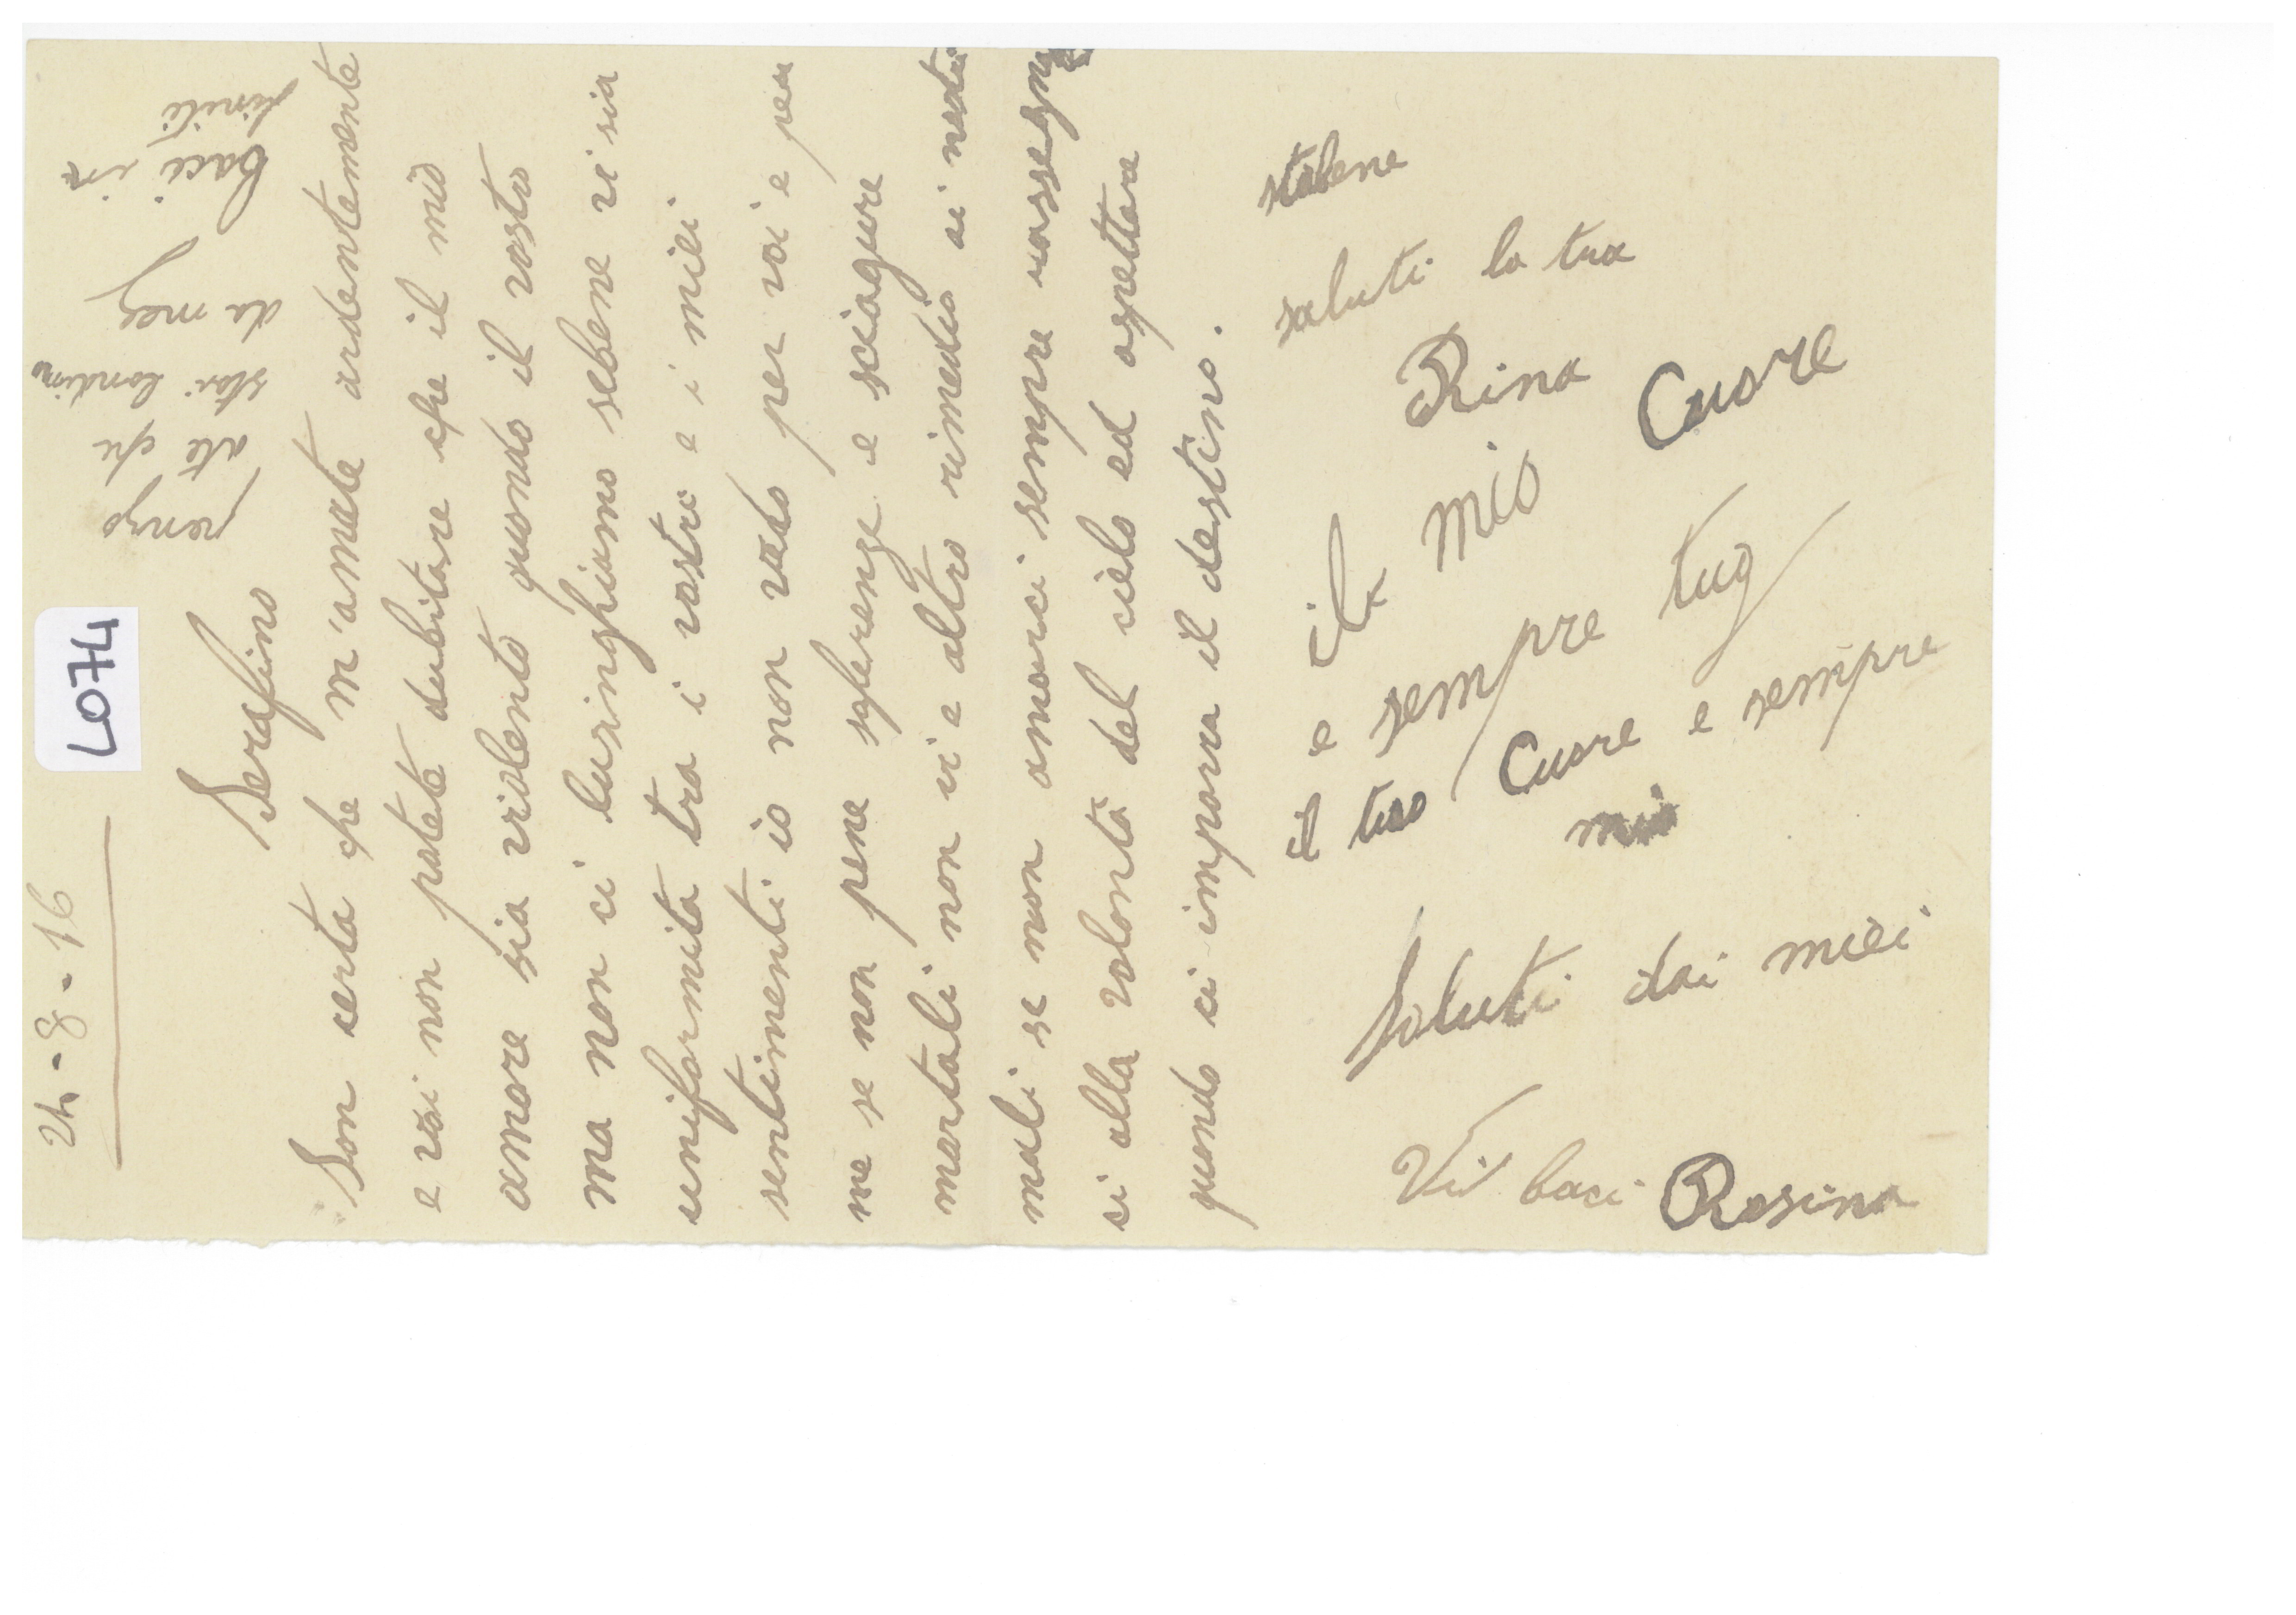 24-8-16
L074
Serafino
Son certa che m'amate ardentemente
e voi non potete dubitare che il mio
amore sia violento quando il vostro
ma non ci lusinghiamo sebene vi sia
uniformita tra i vostri e i miei
sentimenti io non vedo per voi e per
me se non pene soferenze e sciagure
mortali non vi e altro rimedio ai nostri
mali se non amarci sempre rassegnar
si alla volontà del cielo ed aspettare
quando ci imporra il destino.
penzo
sta che
stai lontino
da me
baci
finiti
stabene
saluti la tua
Rina
il mio Cuore
e sempre tuo
il tuo Cuore e sempre
mio
Saluti dai miei
Vi baci Rosina